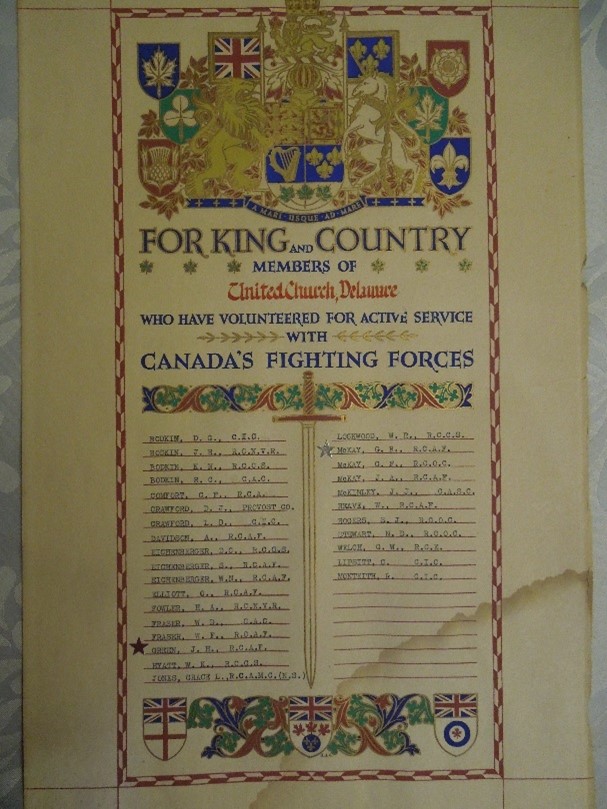 A MARI USQUE AD MARE
FOR KING AND COUNTRY
MEMBERS OF
United Church, Delaware
WHO HAVE VOLUNTEERED FOR ACTIVE SERVICE
WITH
CANADA'S FIGHTING FORCES
BODKIN, D. C., C.I.C.
BODKIN, J. H.,
BODKIN, K. R., R.C.C.S.
BODKIN, R. C., C.A.C.
COMFORT, G. F., R.C.A.
CRAWFORD, D. J., PROVOST CO.
CRAWFORD, L. D., C.I.C.
DAVIDSON, A., R.C.A.F.
EICHENBERGER, R.C.C.S.
EICHENBERGER, R.C.A.F.
EICHENBERGER, W.N., R.C.A.F.
ELLIOTT, G., R.C.A.F.
FOWLER, H. A., R.C.N.V.R.
FRASER, W. D., C.A.C.
FRASER, W. F., R.C.A.F.
GREEN, J. H., R.C.A.F.
HYATT, W. E., R.C.C.S.
JONES, GRACE L., R.C.A.M.C.(N.S.)
LOCKWOOD, W. R., R.C.C.S.
McKAY, G. E., R.C.A.F.
McKAY, G. F., R.C.O.C.
McKAY, J. A., R.C.A.F.
McKINLEY, J. J., C.A.S.C.
R.C.A.F.
ROGERS, D. J., R.C.O.C.
STEWART, H. D., R.C.O.C.
WELCH, G. W., R.C.E.
C. C.I.C.
MONTEITH, R. C.I.C.